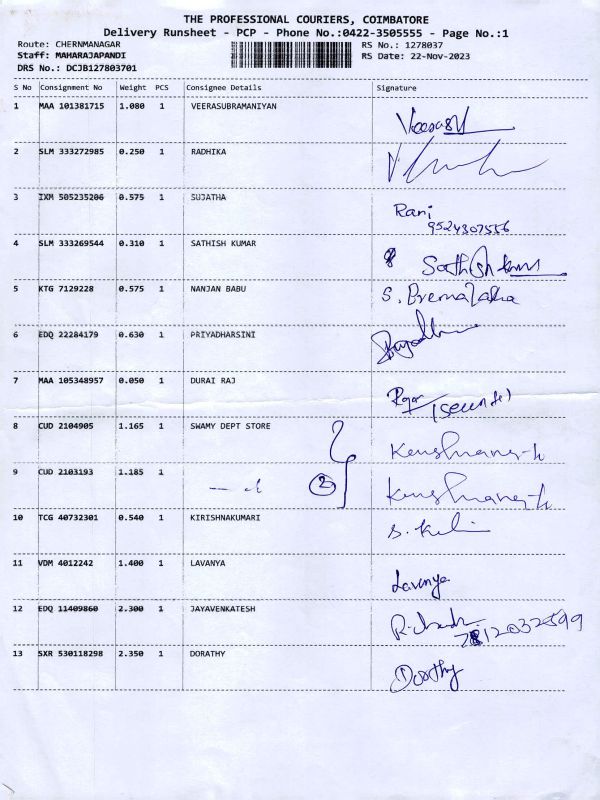 THE PROFESSIONAL COURIERS, COIMBATORE
Delivery Runsheet - PCP - Phone No.:0422-3505555 - Page No.:1
Route: CHERNMANAGAR RS No.: 1278037
Staff: MAHARAJAPANDI RS Date: 22-Nov-2023
DRS No.: DCJB127803701
S No Consignment No Weight PCS Consignee Details Signature
1 MAA 101381715 1.080 1 VEERASUBRAMANIYAN
2 SLM 333272985 0.250 1 RADHIKA
3 IXM 505235206 0.575 1 SUJATHA Rani
9524307556
4 SLM 333269544 0.310 1 SATHISH KUMAR
5 KTG 7129228 0.575 1 NANJAN BABU S. Premalatha
6 EDQ 22284179 0.630 1 PRIYADHARSINI
7 MAA 105348957 0.050 1 DURAI RAJ
8 CUD 2104905 1.165 1 SWAMY DEPT STORE
9 CUD 2103193 1.185 1 2
10 TCG 40732301 0.540 1 KIRISHNAKUMARI
11 VDM 4012242 1.400 1 LAVANYA Lavanya
12 EDQ 11409860 2.300 1 JAYAVENKATESH
13 SXR 530118298 2.350 1 DORATHY Dorathy